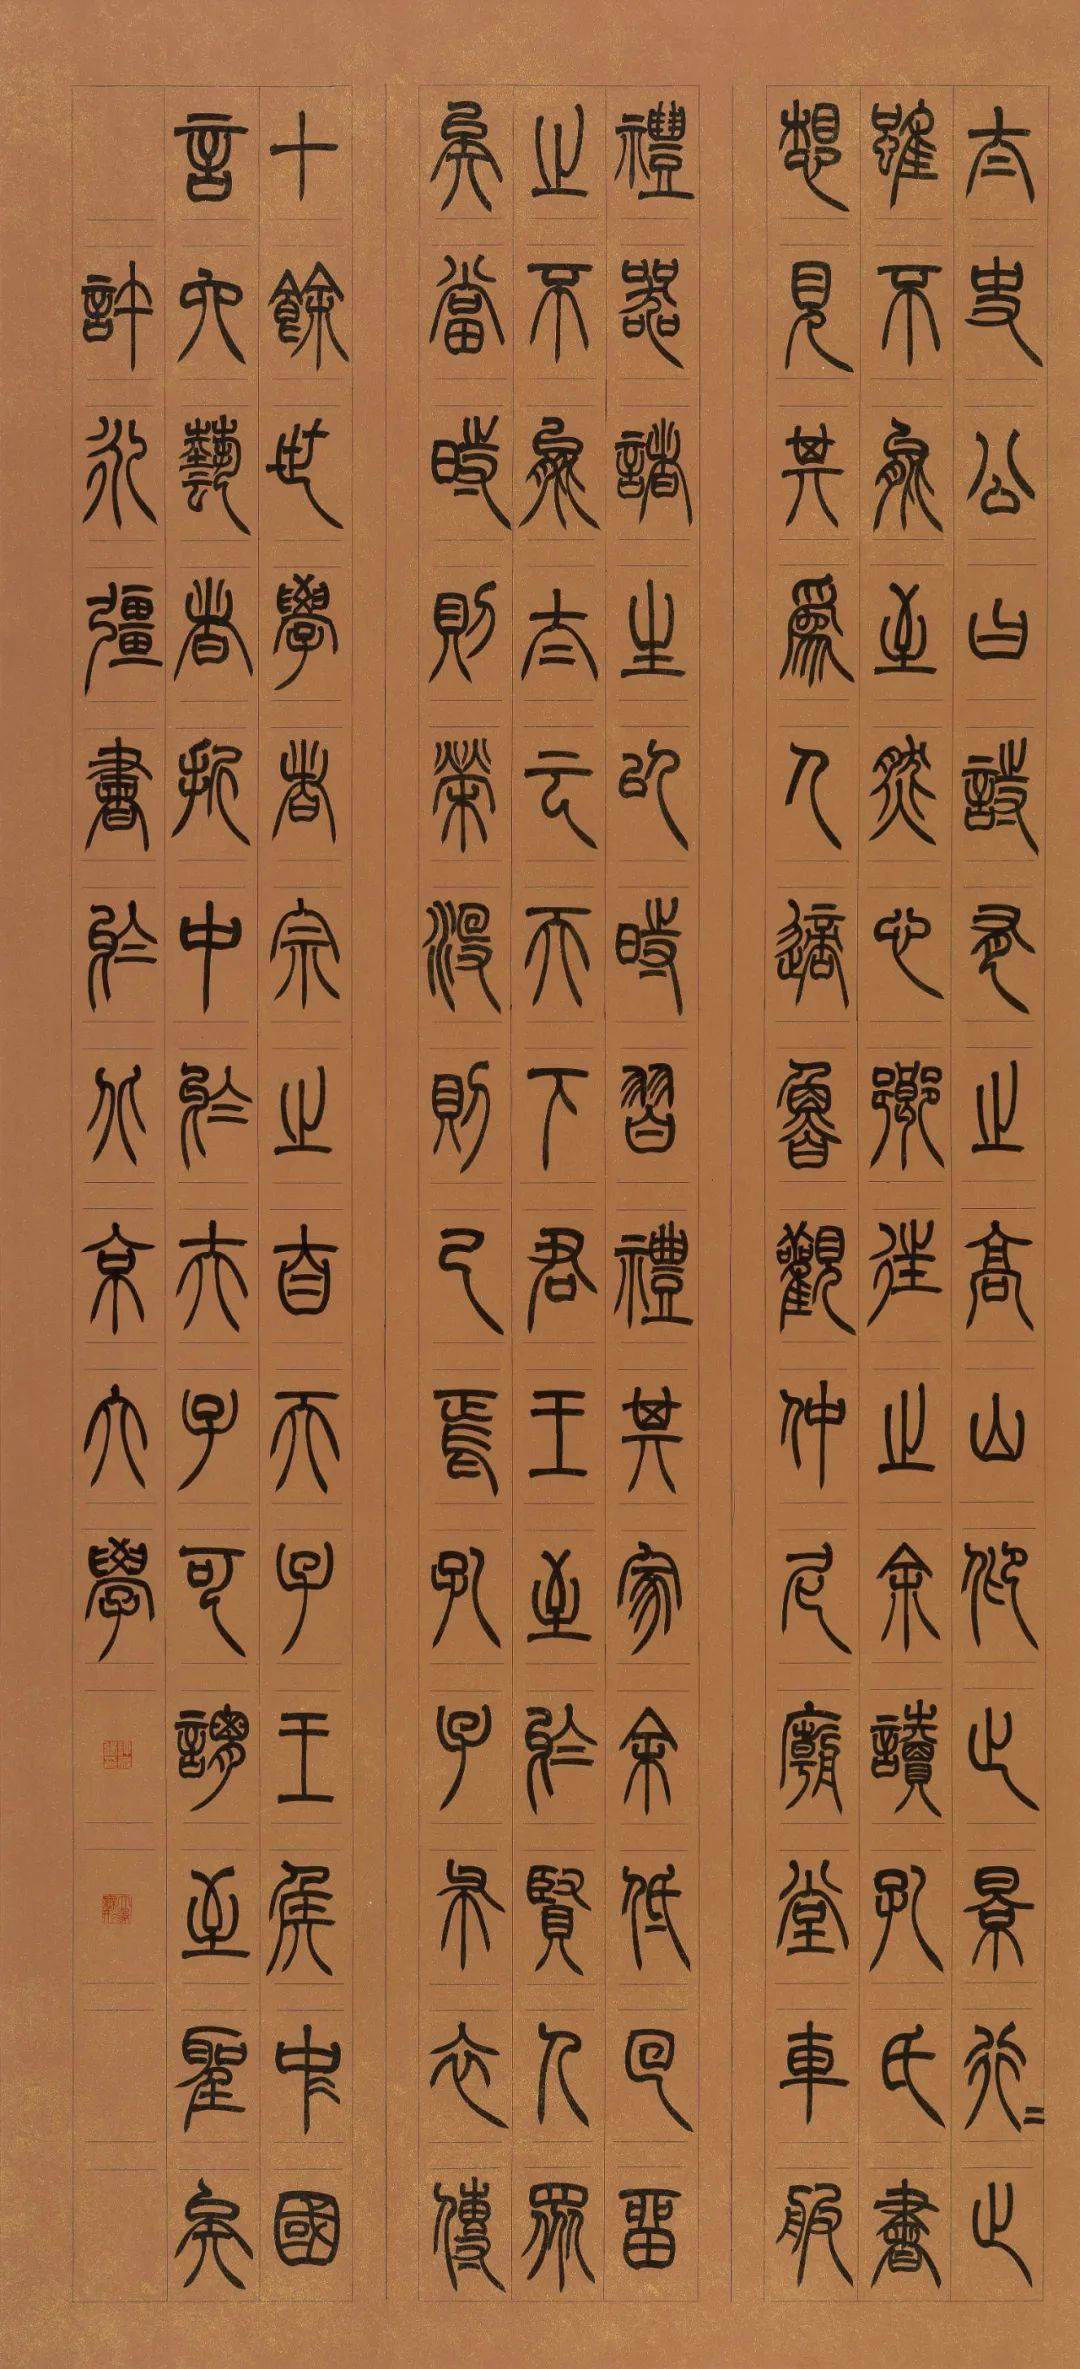 太史公曰詩有之高山仰止景行=止
雖不能至然心鄉往之余讀孔氏書
想見其爲人適魯觀仲尼廟堂車服
禮器諸生以時習禮其家余低回留
之不能去云天下君王至於賢人眾
矣當時則榮沒則已焉孔子布衣傳
十餘世學者宗之自天子王侯中國
言六藝者折中於夫子可謂至聖矣
許永彊書於北京大學